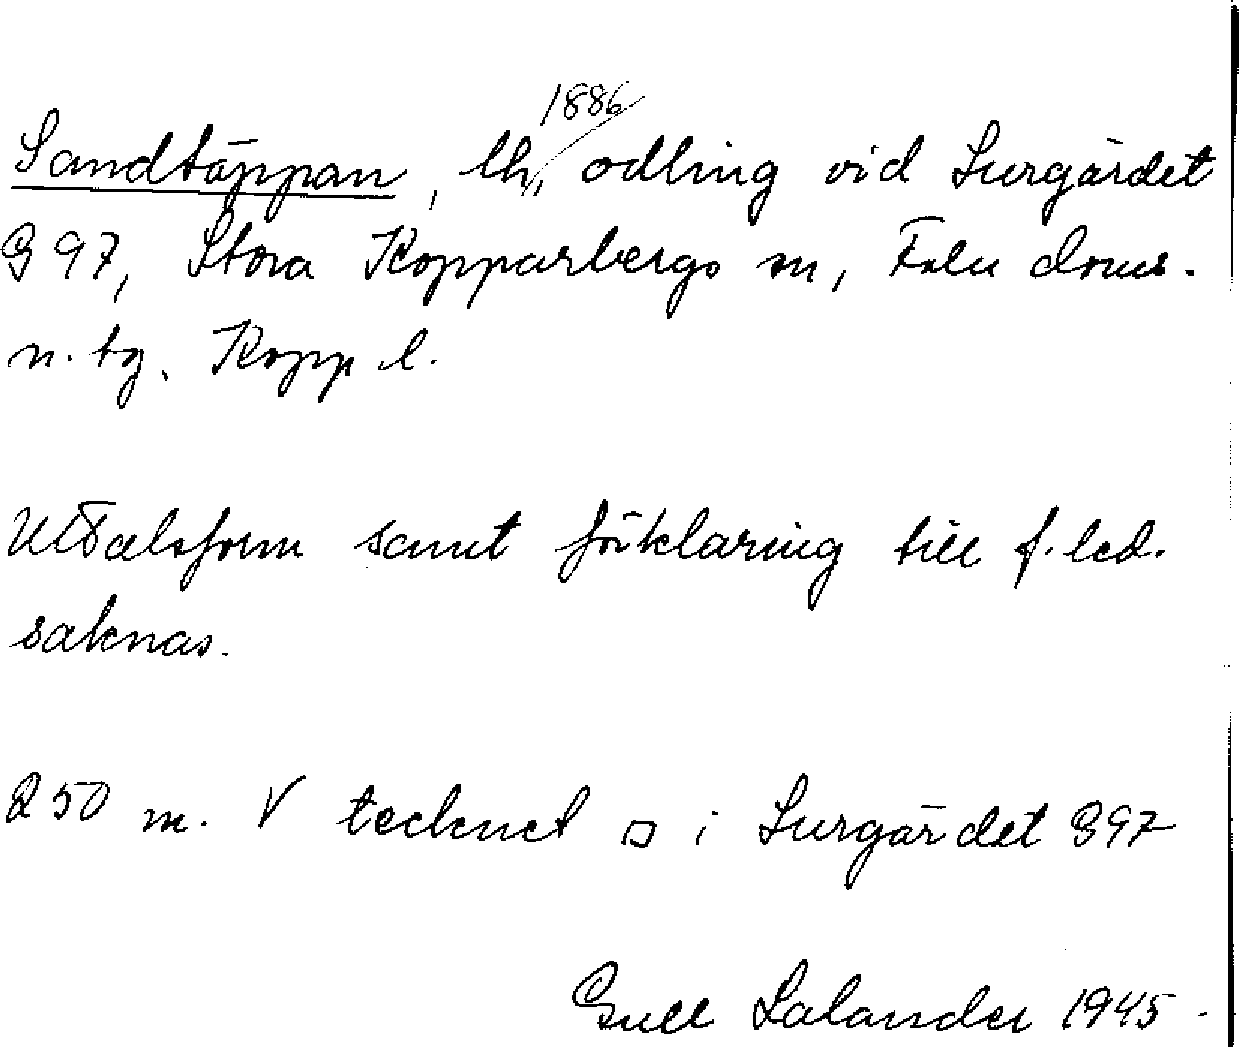 1886
Sandtäppan, lh, odling vid Surgärdet
G 97, Stora Kopparbergs sn, Falu doms.
n. tg. Kopp l.
Uttalsform samt förklaring till f. led.
saknas.
250 m. V tecknet □ i Surgärdet G97
Gull Salander 1945.